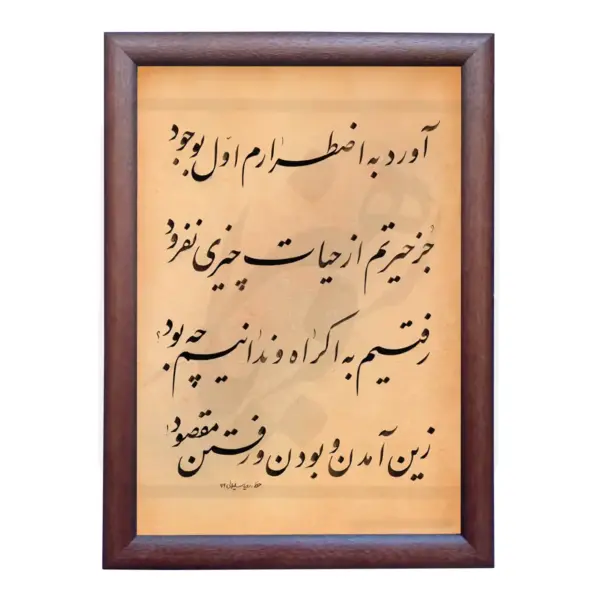 آورد به اضطرارم اوّل بوجود
جُز حیرتم از حیات چیزی نفزود
رفتیم به اکراه و ندانیم چه بود؟
زین آمدن و بودن و رفتن مقصود!